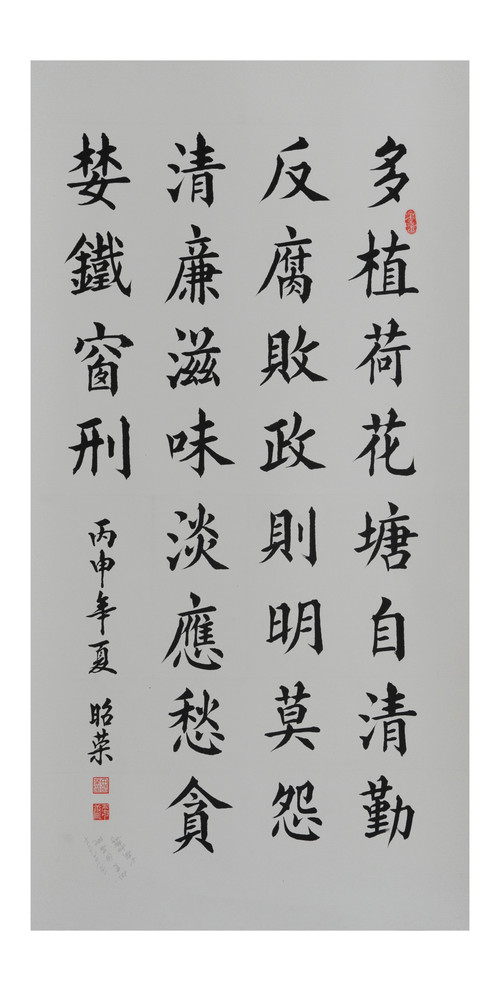 多植荷花塘自清勤
反腐敗政則明莫怨
清廉滋味淡應愁貪
婪鐵窗刑
丙申年夏 昭荣